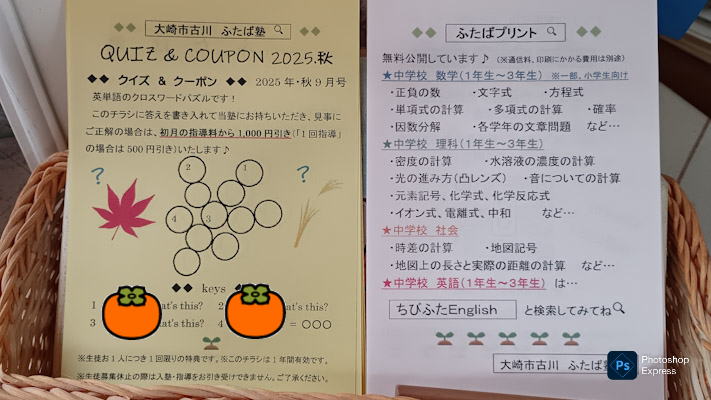 大崎市古川 ふたば塾
QUIZ & COUPON 2025.秋
◆◆ クイズ & クーポン ◆◆ 2025年・秋9月号
英単語のクロスワードパズルです!
このチラシに答えを書き入れて当塾にお持ちいただき、見事に
ご正解の場合は、初月の指導料から1,000円引き(「1回指導」
の場合は500円引き)いたします♪
?
?
2
1
4
3
◆◆ keys
1 at's this? 2 at's this?
3 at's this? 4 = ○○○
※生徒お1人につき1回限りの特典です。※このチラシは1年間有効です。
※生徒募集休止の際は入塾・指導をお引き受けできません。ご了承ください。
ふたばプリント
無料公開しています♪ (※通信料、印刷にかかる費用は別途)
★中学校 数学(1年生~3年生) ※一部、小学生向け
・正負の数 ・文字式 ・方程式
・単項式の計算 ・多項式の計算 ・確率
・因数分解 ・各学年の文章問題 など…
★中学校 理科(1年生~3年生)
・密度の計算 ・水溶液の濃度の計算
・光の進み方(凸レンズ) ・音についての計算
・元素記号、化学式、化学反応式
・イオン式、電離式、中和 など…
★中学校 社会
・時差の計算 ・地図記号
・地図上の長さと実際の距離の計算 など…
★中学校 英語(1年生~3年生) は…
ちびふたEnglish と検索してみてね
大崎市古川 ふたば
Ps Photoshop
Express